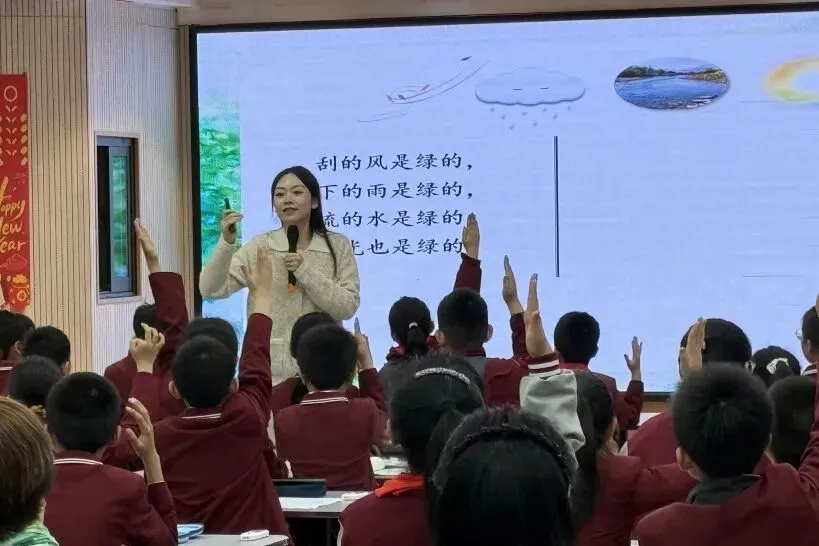 Happy
New
Year
刮的风是绿的，
下的雨是绿的，
流的水是绿的
光也是绿的